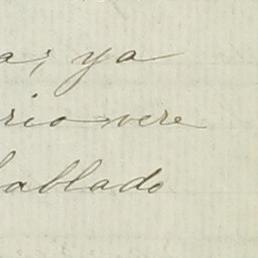 a; ya
rio vere
hablado